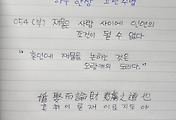 054 (부) 재물은 사람 사이에 인연의
조건이 될 수 없다
"혼인에 재물을 논하는 것은
오랑캐의 도리다."
婚娶而論財 夷虜之道也
혼취이론재 이로지도야